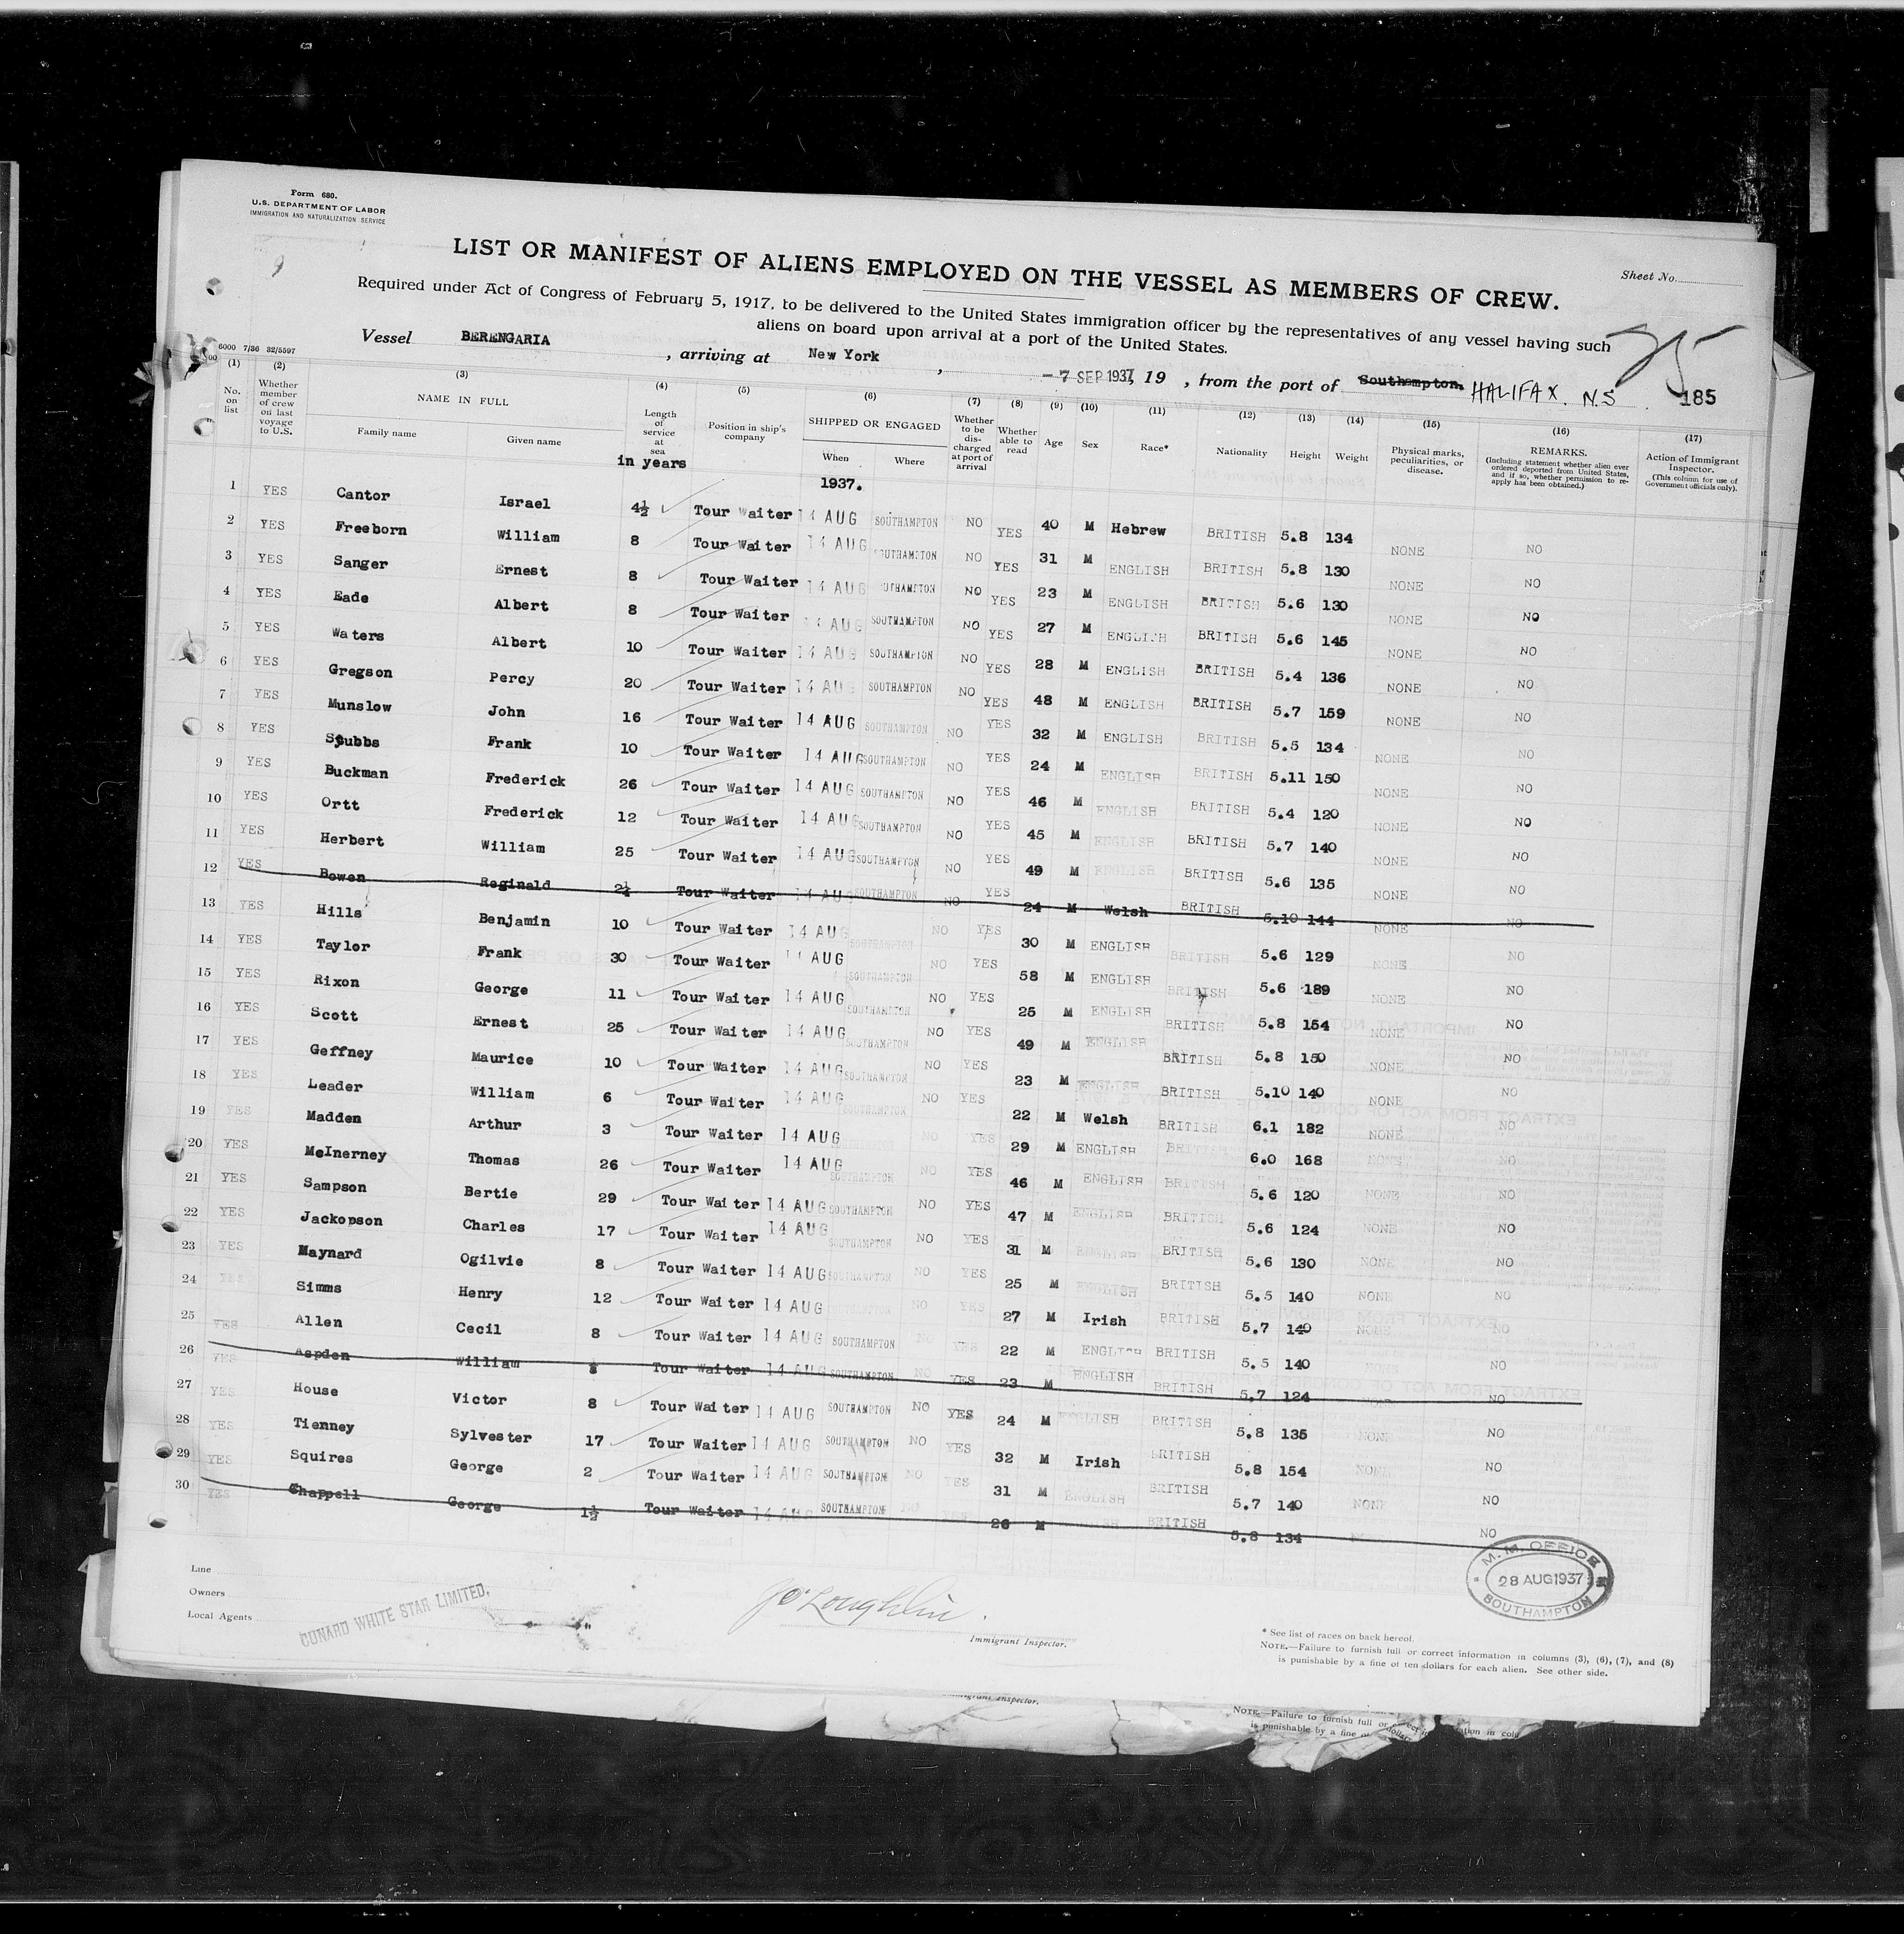 Form 680.
U.S. DEPARTMENT OF LABOR
IMMIGRATION AND NATURALIZATION SERVICE
LIST OR MANIFEST OF ALIENS EMPLOYED ON THE VESSEL AS MEMBERS OF CREW.
Sheet No.
Required under Act of Congress of February 5, 1917, to be delivered to the United States immigration officer by the representatives of any vessel having such
aliens on board upon arrival at a port of the United States.
Vessel BERENGARIA, arriving at New York, -7 SEP 1937, 19 , from the port of Southampton. HALIFAX. N.S. 185
6000 7/36 32/5597
(1) No. on list
(2) Whether member of crew on last voyage to U.S.
(3) NAME IN FULL Family name Given name
(4) Length of service at sea in years
(5) Position in ship's company
(6) SHIPPED OR ENGAGED When Where
(7) Whether to be discharged at port of arrival
(8) Whether able to read
(9) Age
(10) Sex
(11) Race*
(12) Nationality
(13) Height
(14) Weight
(15) Physical marks, peculiarities, or disease.
(16) REMARKS. (Including statement whether alien ever ordered deported from United States, and if so, whether permission to re-apply has been obtained.)
(17) Action of Immigrant Inspector. (This column for use of Government officials only).
1937.
1 YES Cantor Israel 4½ Tour Waiter 14 AUG SOUTHAMPTON NO YES 40 M Hebrew BRITISH 5.8 134 NONE NO
2 YES Freeborn William 8 Tour Waiter 14 AUG SOUTHAMPTON NO YES 31 M ENGLISH BRITISH 5.8 130 NONE NO
3 YES Sanger Ernest 8 Tour Waiter 14 AUG SOUTHAMPTON NO YES 23 M ENGLISH BRITISH 5.6 130 NONE NO
4 YES Eade Albert 8 Tour Waiter 14 AUG SOUTHAMPTON NO YES 27 M ENGLISH BRITISH 5.6 145 NONE NO
5 YES Waters Albert 10 Tour Waiter 14 AUG SOUTHAMPTON NO YES 28 M ENGLISH BRITISH 5.4 136 NONE NO
6 YES Gregson Percy 20 Tour Waiter 14 AUG SOUTHAMPTON NO YES 48 M ENGLISH BRITISH 5.7 159 NONE NO
7 YES Munslow John 16 Tour Waiter 14 AUG SOUTHAMPTON NO YES 32 M ENGLISH BRITISH 5.5 134 NONE NO
8 YES Stubbs Frank 10 Tour Waiter 14 AUG SOUTHAMPTON NO YES 24 M ENGLISH BRITISH 5.11 150 NONE NO
9 YES Buckman Frederick 26 Tour Waiter 14 AUG SOUTHAMPTON NO YES 46 M ENGLISH BRITISH 5.4 120 NONE NO
10 YES Ortt Frederick 12 Tour Waiter 14 AUG SOUTHAMPTON NO YES 45 M ENGLISH BRITISH 5.7 140 NONE NO
11 YES Herbert William 25 Tour Waiter 14 AUG SOUTHAMPTON NO YES 49 M ENGLISH BRITISH 5.6 135 NONE NO
12 YES Bowen Reginald 2½ Tour Waiter 14 AUG SOUTHAMPTON NO YES 24 M Welsh BRITISH 5.10 144 NONE NO
13 YES Hills Benjamin 10 Tour Waiter 14 AUG SOUTHAMPTON NO YES 30 M ENGLISH BRITISH 5.6 129 NONE NO
14 YES Taylor Frank 30 Tour Waiter 14 AUG SOUTHAMPTON NO YES 58 M ENGLISH BRITISH 5.6 189 NONE NO
15 YES Rixon George 11 Tour Waiter 14 AUG SOUTHAMPTON NO YES 25 M ENGLISH BRITISH 5.8 154 NONE NO
16 YES Scott Ernest 25 Tour Waiter 14 AUG SOUTHAMPTON NO YES 49 M ENGLISH BRITISH 5.8 150 NONE NO
17 YES Geffney Maurice 10 Tour Waiter 14 AUG SOUTHAMPTON NO YES 23 M ENGLISH BRITISH 5.10 140 NONE NO
18 YES Leader William 6 Tour Waiter 14 AUG SOUTHAMPTON NO YES 22 M Welsh BRITISH 6.1 182 NONE NO
19 YES Madden Arthur 3 Tour Waiter 14 AUG NO YES 29 M ENGLISH BRITISH 6.0 168 NONE NO
20 YES McInerney Thomas 26 Tour Waiter 14 AUG SOUTHAMPTON NO YES 46 M ENGLISH BRITISH 5.6 120 NONE NO
21 YES Sampson Bertie 29 Tour Waiter 14 AUG SOUTHAMPTON NO YES 47 M ENGLISH BRITISH 5.6 124 NONE NO
22 YES Jackopson Charles 17 Tour Waiter 14 AUG SOUTHAMPTON NO YES 31 M ENGLISH BRITISH 5.6 130 NONE NO
23 YES Maynard Ogilvie 8 Tour Waiter 14 AUG SOUTHAMPTON NO YES 25 M ENGLISH BRITISH 5.5 140 NONE NO
24 YES Simms Henry 12 Tour Waiter 14 AUG SOUTHAMPTON NO YES 27 M Irish BRITISH 5.7 140 NONE NO
25 YES Allen Cecil 8 Tour Waiter 14 AUG SOUTHAMPTON NO YES 22 M ENGLISH BRITISH 5.5 140 NO
26 YES Aspden William 8 Tour Waiter 14 AUG SOUTHAMPTON NO YES 23 M ENGLISH BRITISH 5.7 124 NONE NO
27 YES House Victor 8 Tour Waiter 14 AUG SOUTHAMPTON NO YES 24 M ENGLISH BRITISH 5.8 135 NONE NO
28 YES Tienney Sylvester 17 Tour Waiter 14 AUG SOUTHAMPTON NO YES 32 M Irish BRITISH 5.8 154 NONE NO
29 YES Squires George 2 Tour Waiter 14 AUG SOUTHAMPTON NO YES 31 M ENGLISH BRITISH 5.7 140 NONE NO
30 YES Chappell George 1½ Tour Waiter 14 AUG SOUTHAMPTON YES 26 M ENGLISH BRITISH 5.8 134 NO
Line
Owners
Local Agents
CUNARD WHITE STAR LIMITED.
J O'Loughlin.
Immigrant Inspector.
M. M. OFFICE
28 AUG 1937
SOUTHAMPTON
* See list of races on back hereof.
NOTE.—Failure to furnish full or correct information in columns (3), (6), (7), and (8)
is punishable by a fine of ten dollars for each alien. See other side.
Immigrant Inspector.
NOTE.—Failure to furnish full or
is punishable by a fine